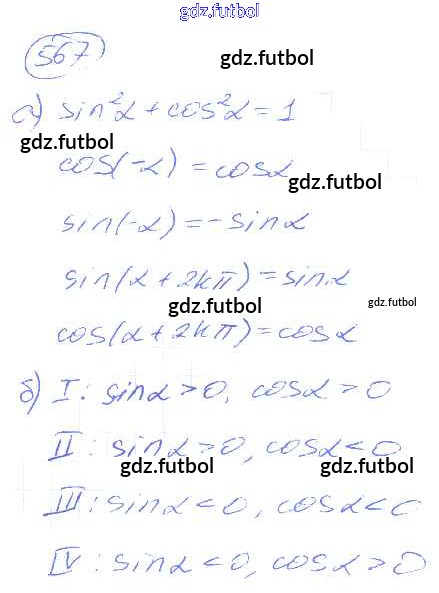 gdz.futbol
567
gdz.futbol
а) sin²α + cos²α = 1
gdz.futbol
cos(-α) = cosα
gdz.futbol
sin(-α) = -sinα
sin(α + 2kπ) = sinα
gdz.futbol
gdz.futbol
cos(α + 2kπ) = cosα
б) I: sinα > 0, cosα > 0
II: sinα > 0, cosα < 0
gdz.futbol
gdz.futbol
III: sinα < 0, cosα < 0
IV: sinα < 0, cosα > 0